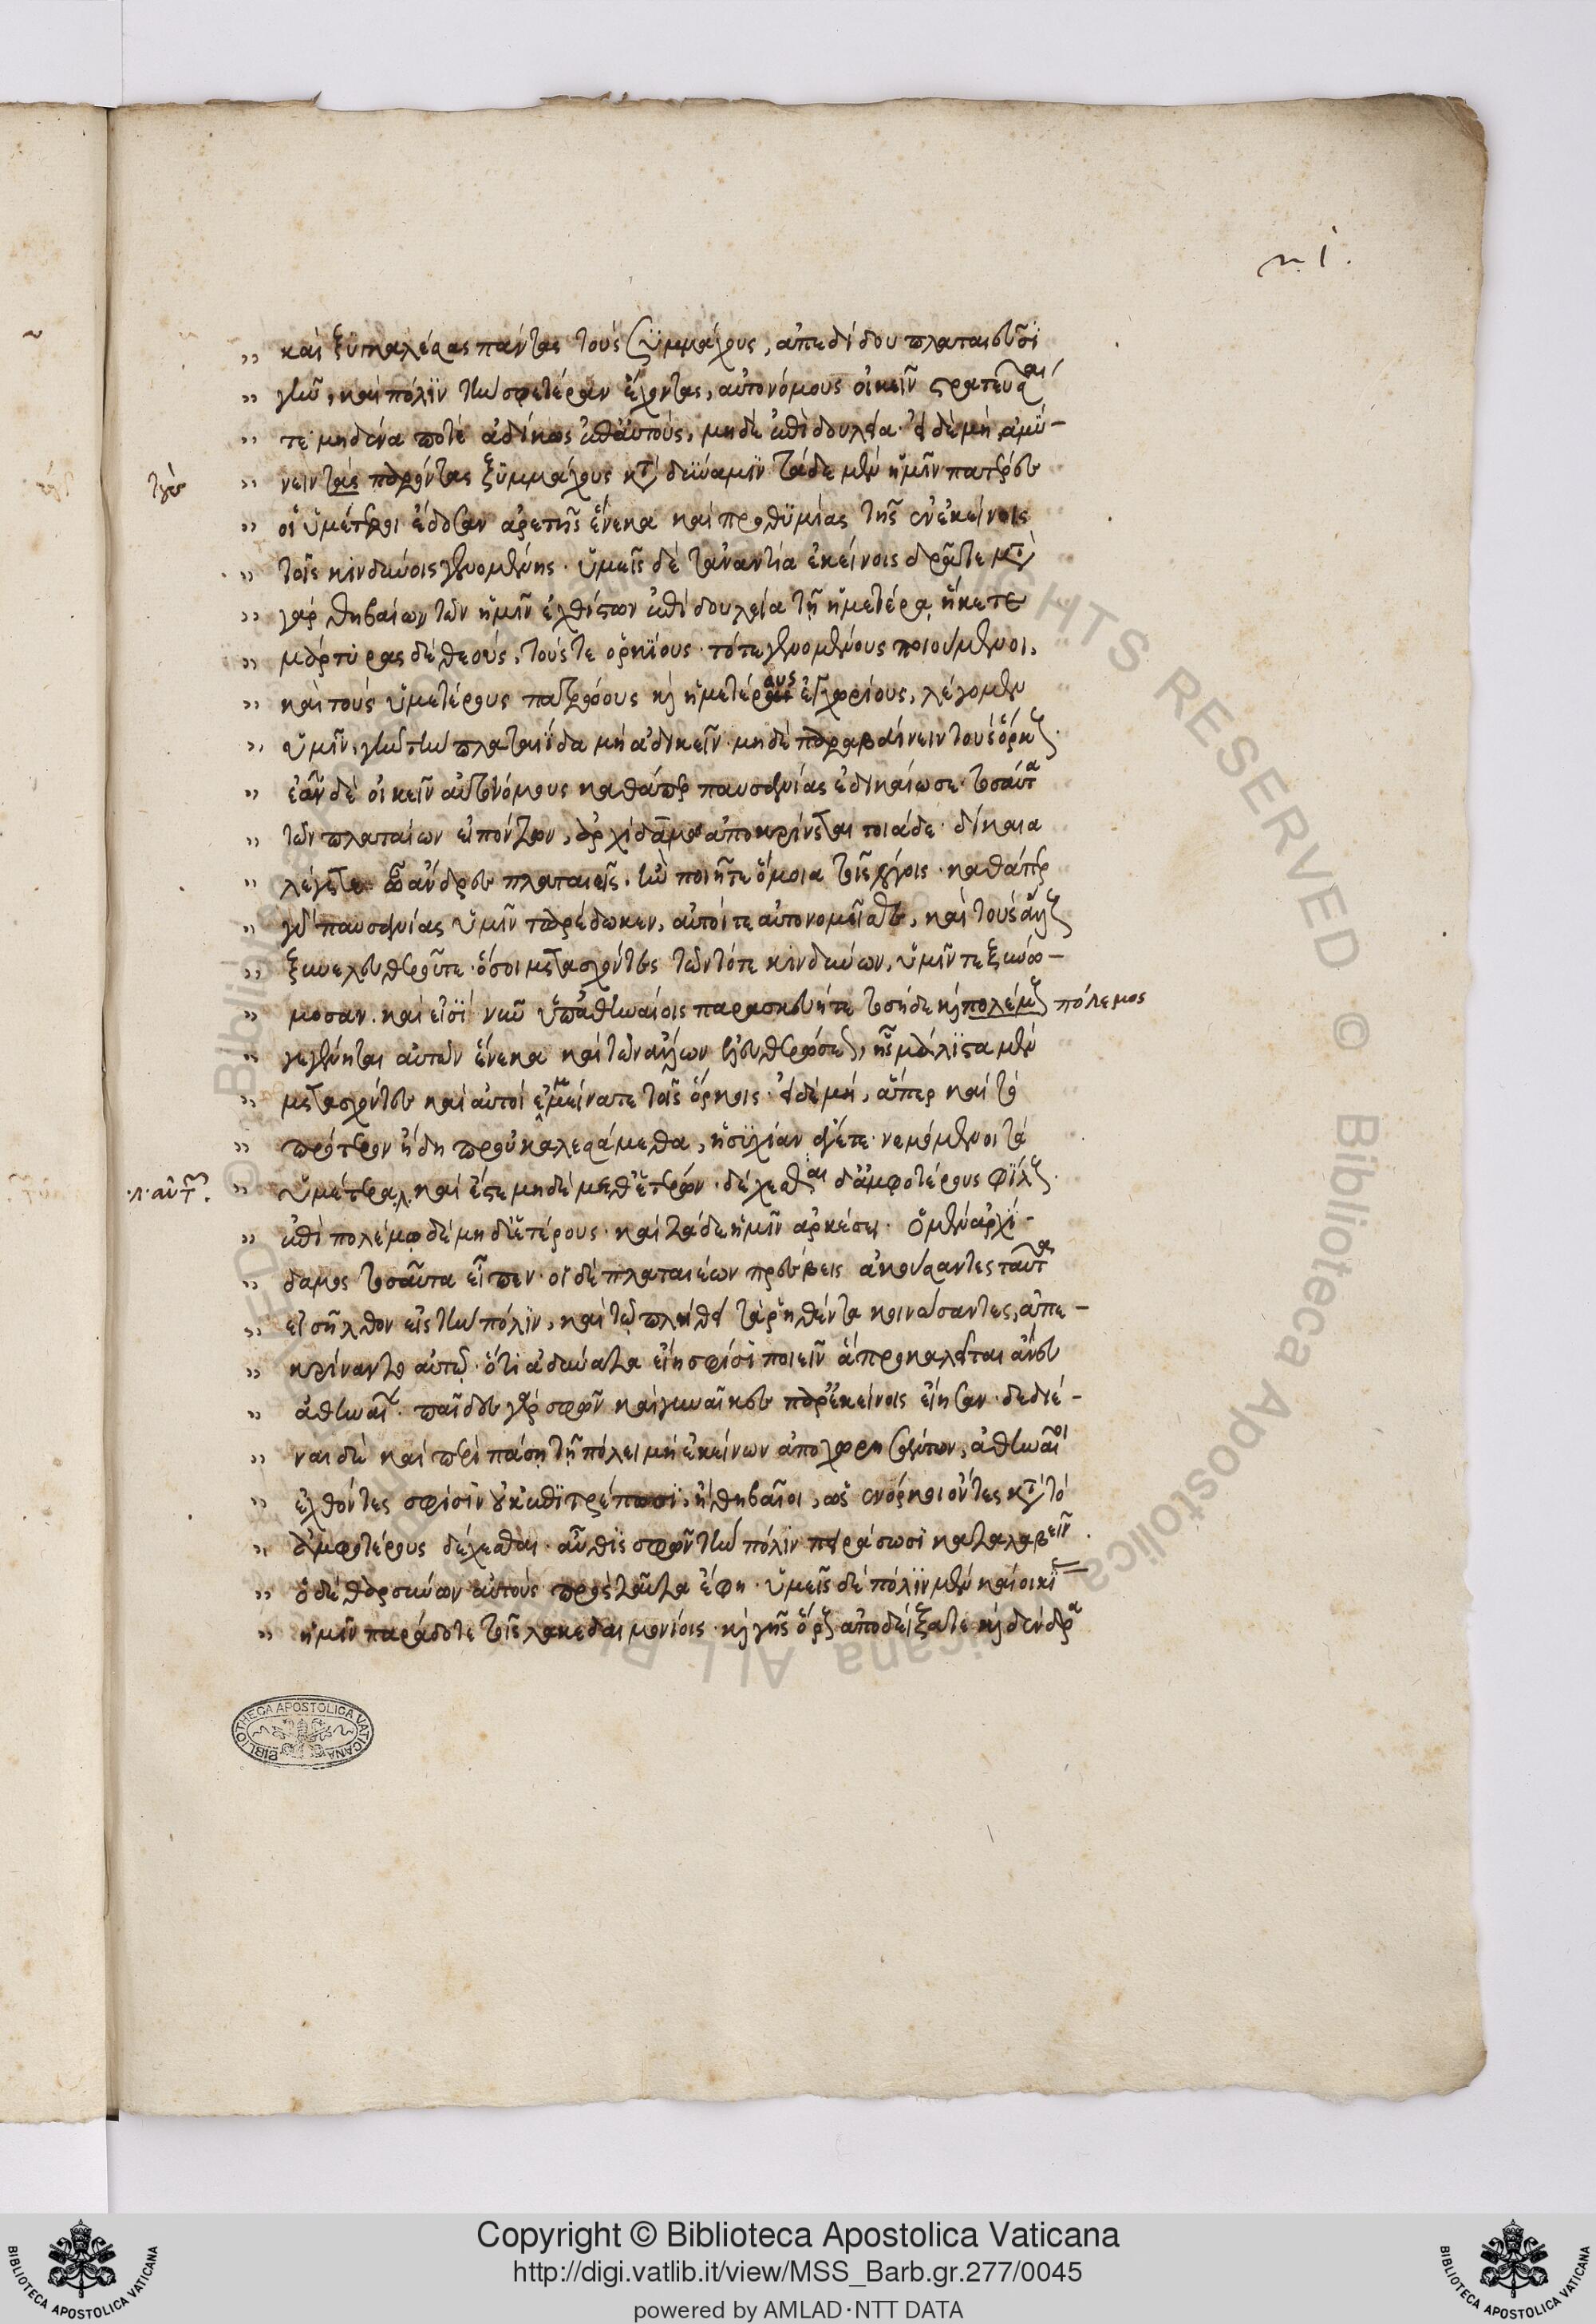 n. 1.
καὶ ξυγκαλέσας πάντας τοὺς ξυμμάχους, ἀπεδίδου πλαταιεῦσι
γῆν, καὶ πόλιν τὴν σφετέραν ἔχοντας, αὐτονόμους οἰκεῖν στρατεῦσαι
τε μηδένα ποτὲ ἀδίκως ἐπ' αὐτοὺς, μηδὲ ἐπὶ δουλεία· εἰ δὲ μὴ, ἀμύ-
τοὺς
νειν τὰς παρόντας ξυμμάχους κατὰ δύναμιν τάδε μὲν ἡμῖν πατέρες
οἱ ὑμέτεροι ἔδοσαν ἀρετῆς ἕνεκα καὶ προθυμίας τῆς ἐν ἐκείνοις
τοῖς κινδύνοις γενομένης· ὑμεῖς δὲ τἀναντία ἐκείνοις δρᾶτε μετὰ
γὰρ θηβαίων τῶν ἡμῖν ἐχθίστων ἐπὶ δουλεία τῇ ἡμετέρα ἥκετε
μάρτυρας δὲ θεοὺς, τούς τε ὁρκίους τότε γενομένους ποιούμενοι,
καὶ τοὺς ὑμετέρους πατρώους καὶ ἡμετέρους ἐγχωρίους, λέγομεν
ὑμῖν, γῆν τὴν πλαταιΐδα μὴ ἀδικεῖν· μηδὲ παραβαίνειν τοὺς ὅρκους·
ἐᾶν δὲ οἰκεῖν αὐτονόμους καθάπερ παυσανίας ἐδικαίωσε· τοσαῦτα
τῶν πλαταιῶν εἰπόντων, ἀρχίδαμος ἀποκρίνεται τοιάδε· δίκαια
λέγετε ὦ ἄνδρες πλαταιεῖς. ἢν ποιῆτε ὅμοια τοῖς λόγοις· καθάπερ
γὰρ παυσανίας ὑμῖν παρέδωκεν, αὐτοί τε αὐτονομεῖσθε, καὶ τοὺς ἄλλους
ξυνελευθεροῦτε· ὅσοι μετασχόντες τῶν τότε κινδύνων, ὑμῖν τε ξυνώ-
μοσαν. καὶ εἰσὶ νῦν ὑπ' ἀθηναίοις παρασκευήτε τοσήδε καὶ πολέμους πόλεμος
γεγένηται αὐτῶν ἕνεκα καὶ τῶν ἄλλων ἐλευθερώσεως, ἧς μάλιστα μὲν
μετασχόντες καὶ αὐτοὶ ἐμμείνατε τοῖς ὅρκοις· εἰ δὲ μὴ, ἅπερ καὶ τὸ
πρότερον ἤδη προὐκαλεσάμεθα, ἡσυχίαν ἄγετε· νεμόμενοι τὰ
·λ· αὐτῶν.
ὑμέτερα. καὶ ἔστε μηδὲ μεθ' ἑτέρων· δέχεσθαι δ' ἀμφοτέρους φίλους·
ἐπὶ πολέμῳ δὲ μηδὲ ἑτέρους· καὶ τάδε ἡμῖν ἀρκέσει. Ὁ μὲν ἀρχί-
δαμος τοσαῦτα εἶπεν· οἱ δὲ πλαταιέων πρέσβεις ἀκούσαντες ταῦτα
εἰσῆλθον εἰς τὴν πόλιν, καὶ τῷ πλήθει τὰ ῥηθέντα κοινώσαντες, ἀπε-
κρίναντο αὐτῷ· ὅτι ἀδύνατα εἴη σφίσι ποιεῖν ἃ προκαλεῖται ἄνευ
ἀθηναίων· παῖδες γὰρ σφῶν καὶ γυναῖκες παρ' ἐκείνοις εἴησαν· δεδιέ-
ναι δὲ καὶ περὶ πάση τῇ πόλει μὴ ἐκείνων ἀποχωρησάντων, ἀθηναῖοι
ἐλθόντες σφίσιν οὐκ ἐπιτρέπωσι, ἢ θηβαῖοι, ὡς ἔνορκοι ὄντες κατὰ τὸ
ἀμφοτέρους δέχεσθαι· αὖθις σφῶν τὴν πόλιν πειράσωσι καταλαβεῖν·
ὁ δὲ θαρσύνων αὐτοὺς πρὸς ταῦτα ἔφη· ὑμεῖς δὲ πόλιν μὲν καὶ οἰκίας
ἡμῖν παράδοτε τοῖς λακεδαιμονίοις· καὶ γῆς ὅρους ἀποδείξατε καὶ δένδρα
BIBLIOTHECA APOSTOLICA VATICANA
© Biblioteca Apostolica Vaticana ALL RIGHTS RESERVED
Copyright © Biblioteca Apostolica Vaticana
http://digi.vatlib.it/view/MSS_Barb.gr.277/0045
powered by AMLAD·NTT DATA
BIBLIOTECA APOSTOLICA VATICANA
BIBLIOTECA APOSTOLICA VATICANA